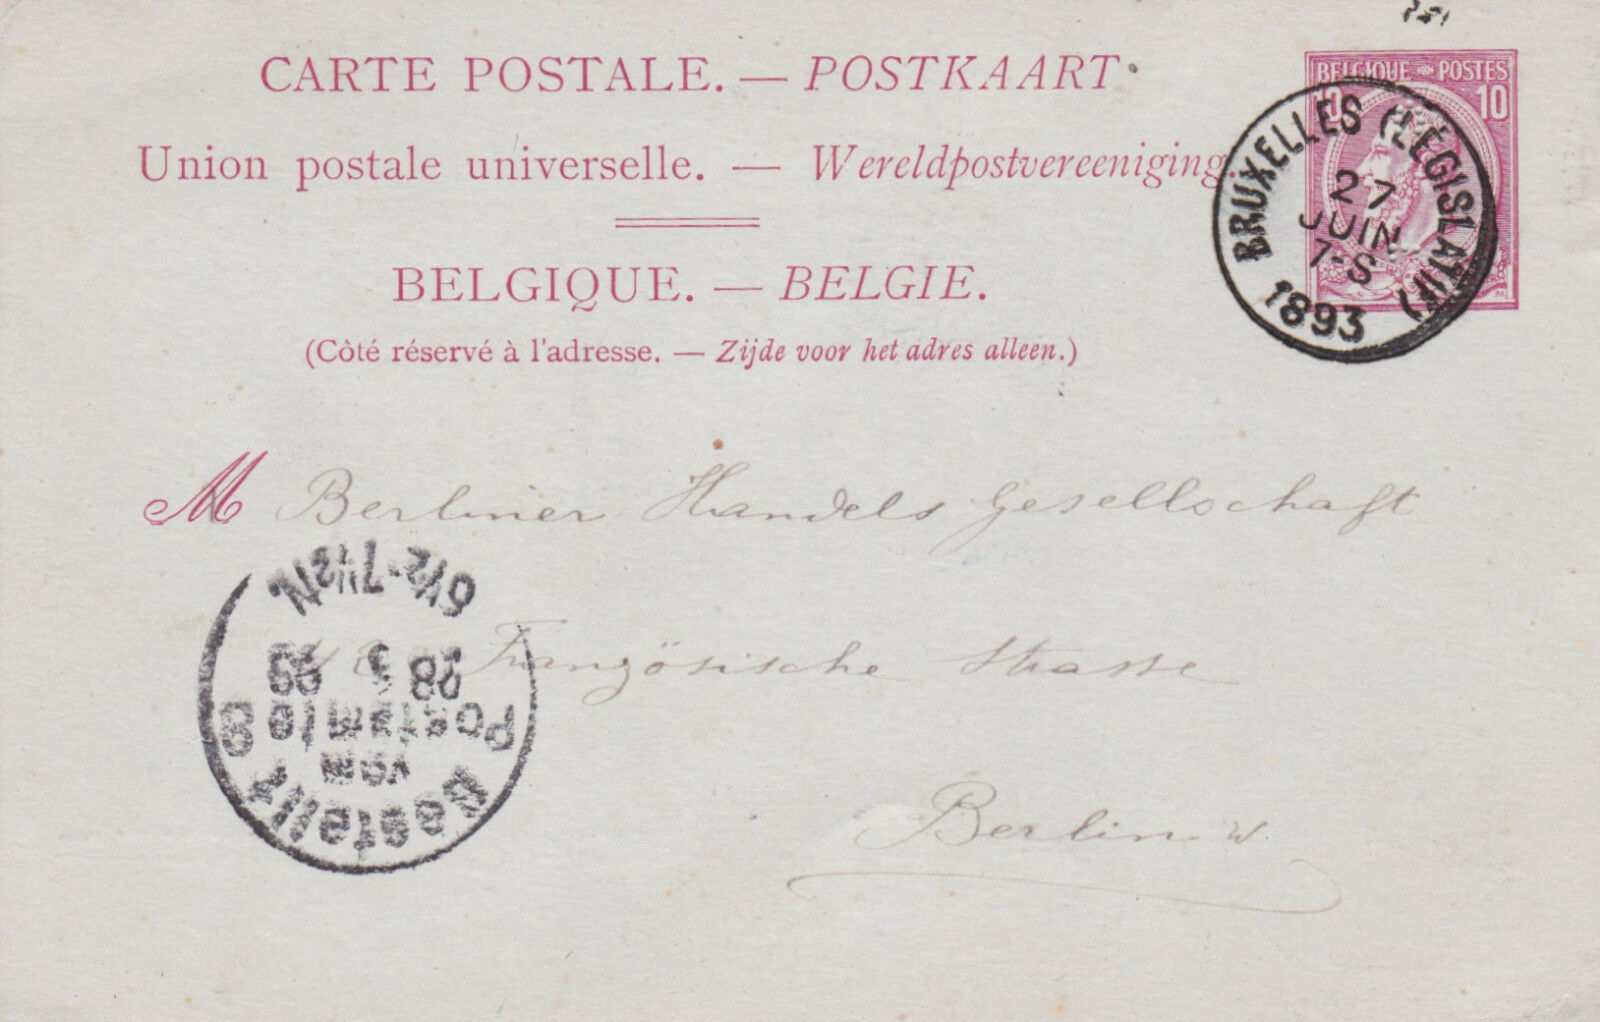 BELGIQUE POSTES
10 10
CARTE POSTALE. — POSTKAART
Union postale universelle. — Wereldpostvereeniging.
BELGIQUE. — BELGIE.
(Côté réservé à l'adresse. — Zijde voor het adres alleen.)
BRUXELLES (LÉGISLATIF)
27
JUIN
7-S
1893
M Berliner Handels Gesellschaft
Französische Strasse
Berlin W.
Bestellt
vom
Postamte 8
28 93
6½-7½N.